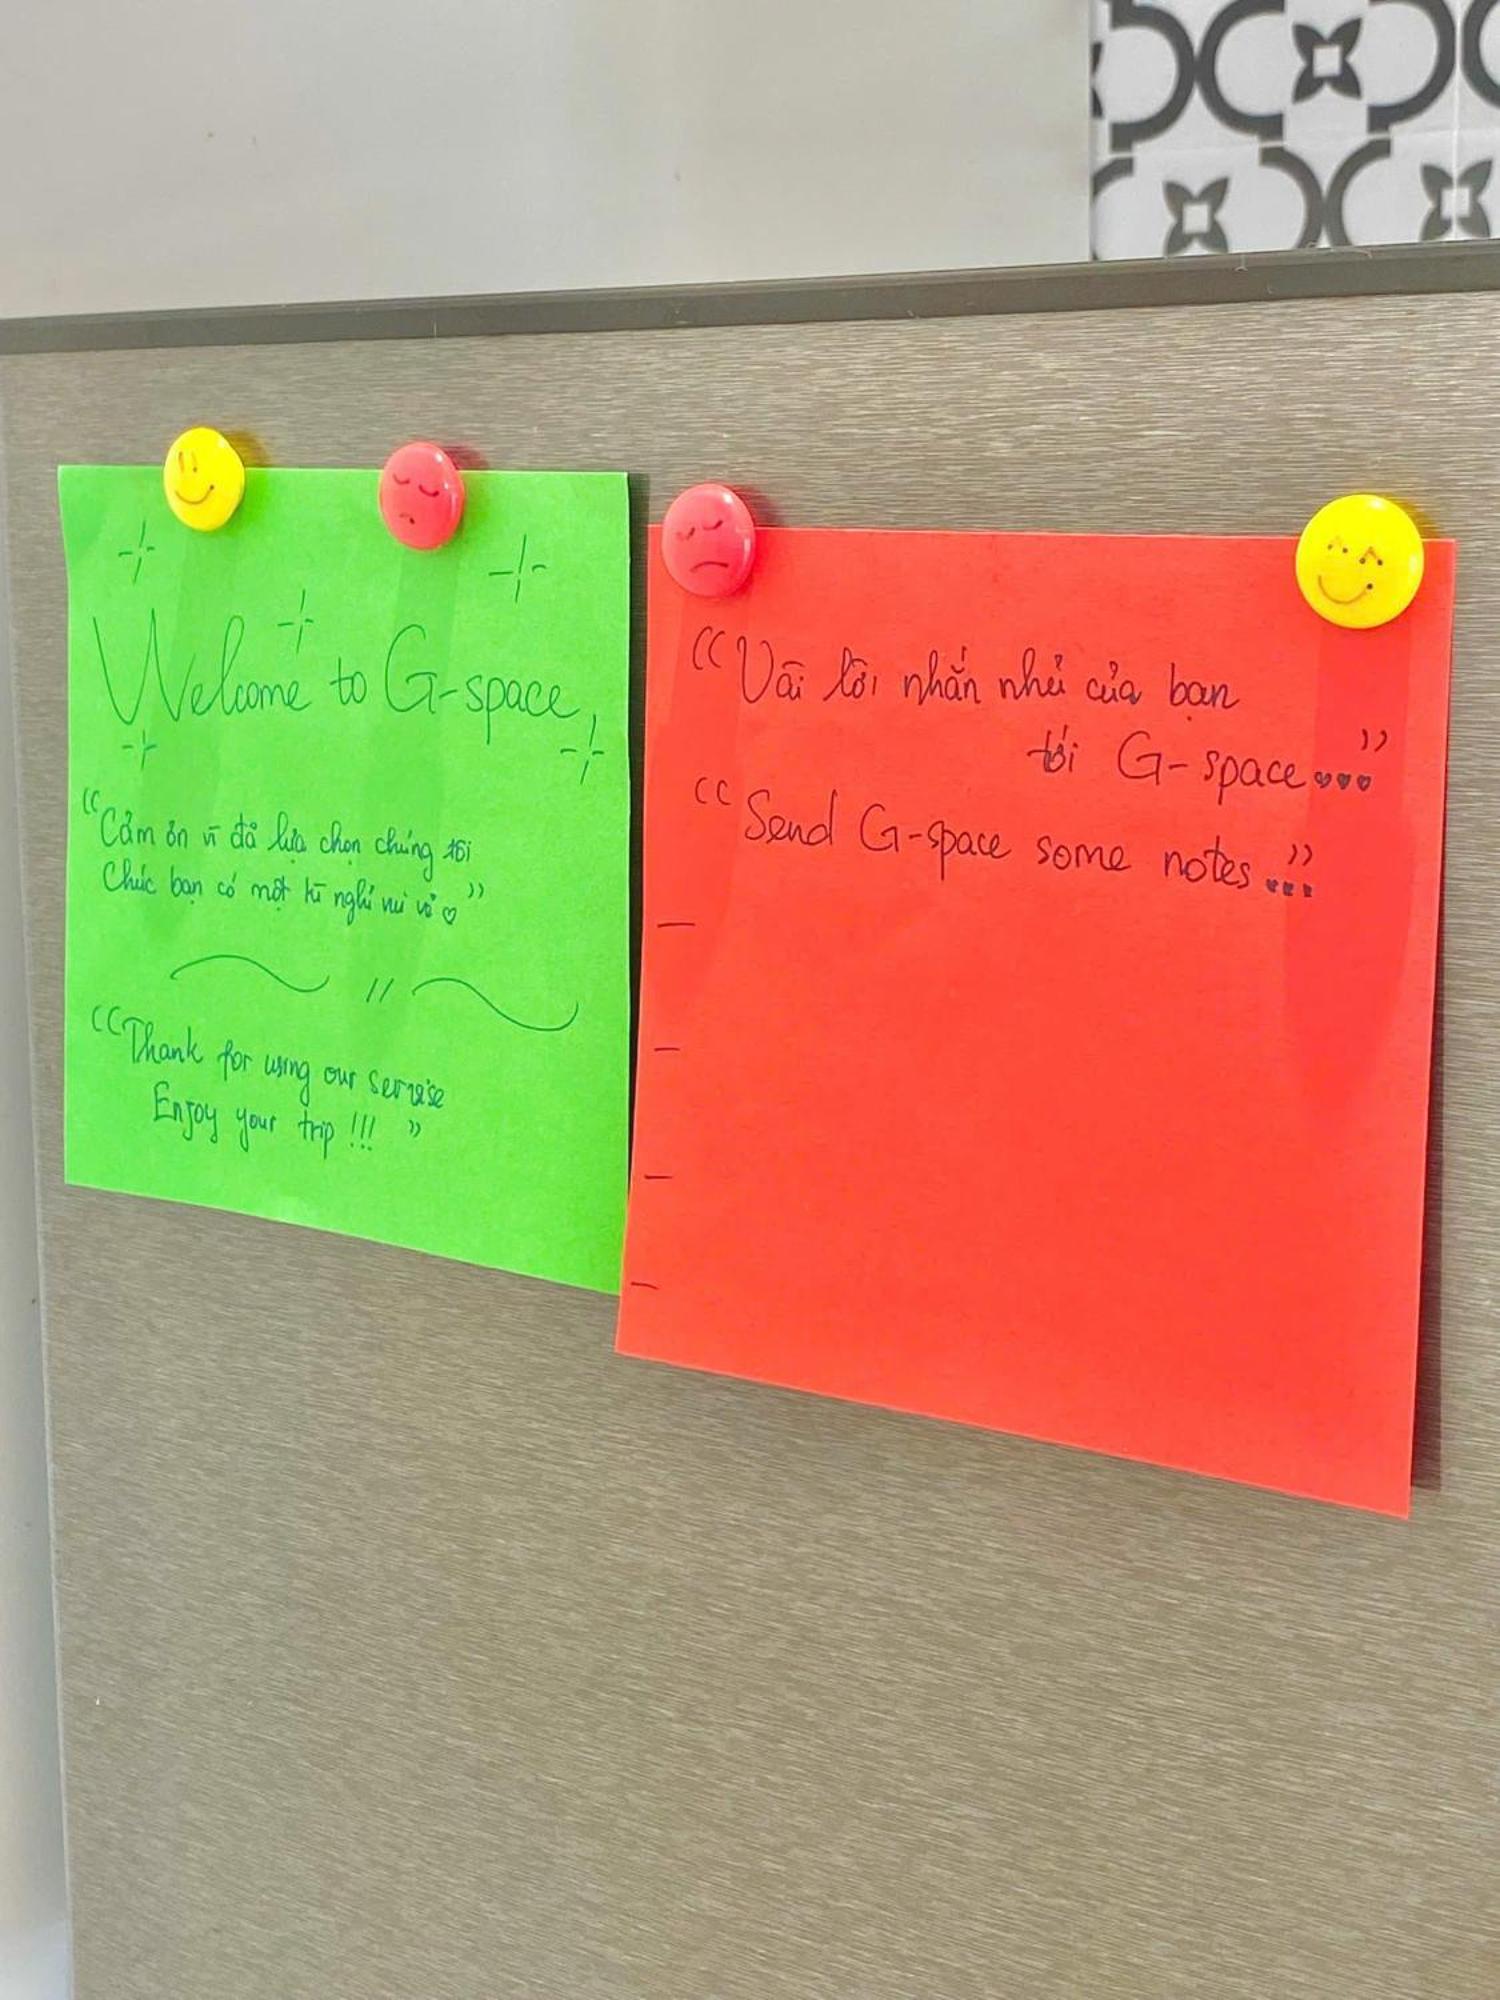 Welcome to G-space,
“Cảm ơn vì đã lựa chọn chúng tôi
Chúc bạn có một kì nghỉ vui vẻ ♡”
“Thank for using our servise
Enjoy your trip !!! ”
“Vài lời nhắn nhủ của bạn
tới G-space...”
“Send G-space some notes...”